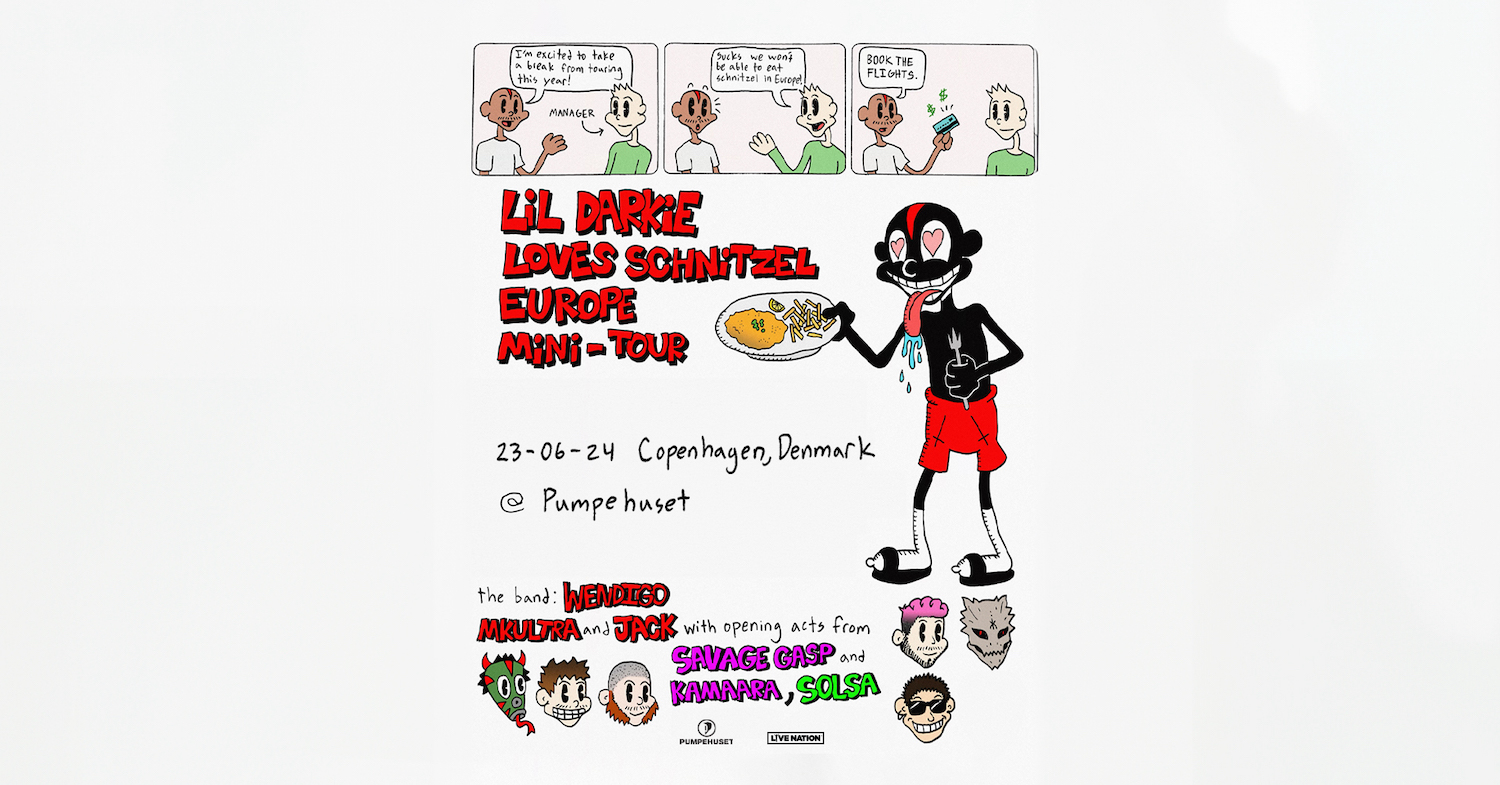 I'm excited to take
a break from touring
this year!
MANAGER
Sucks we won't
be able to eat
schnitzel in Europe!
BOOK THE
FLIGHTS.
$ $
LiL DARKiE
LOVES SCHNiTZEL
EUROPE
MiNi-TOUR
23-06-24 Copenhagen, Denmark
@ Pumpehuset
the band: WENDIGO
MKULTRA and JACK with opening acts from
SAVAGE GASP and
KAMAARA, SOLSA
PUMPEHUSET
LIVE NATION